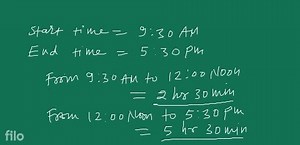 Start time = 9:30 AM
End time = 5:30 pm
From 9.30 AM to 12:00 Noon
= 2 hr 30 min
From 12:00 Noon to 5:30 pm
= 5 hr 30 min
filo